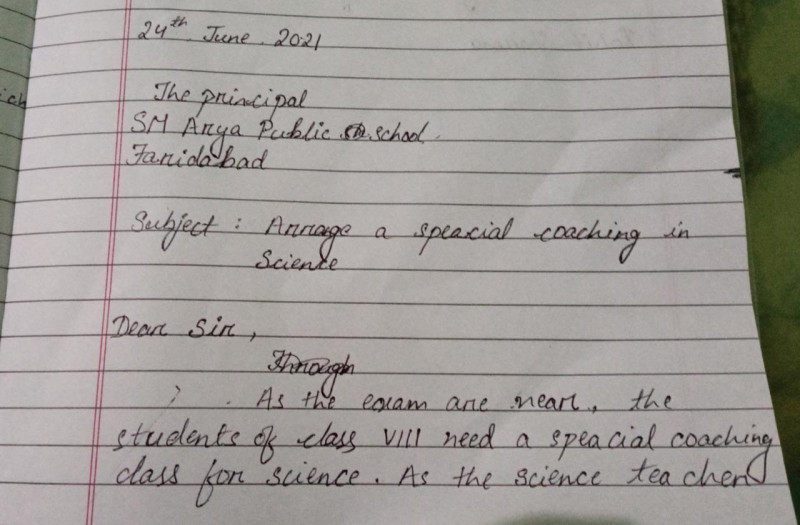 24th June. 2021
The principal
SM Arya Public school.
Faridabad
Subject : Arrrage a speacial coaching in
Science
Dear Sir,
Through
As the exam are near, the
students of class VIII need a speacial coaching
class for science. As the science teacher